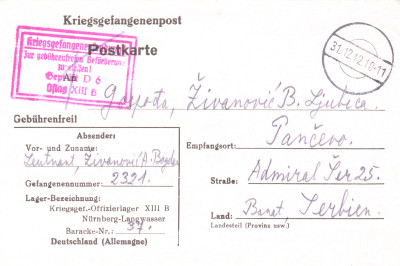 Kriegsgefangenenpost
Postkarte
Kriegsgefangenen
Zur gebührenfreien Beförderung
zugelassen!
Geprüft D 6
Oflag XIII B
31.12.42.10-11
An
Gospođa, Živanović B. Ljubica.
Gebührenfrei!
Absender:
Vor- und Zuname:
Leutnant, Živanović A.
Gefangenennummer: 2321.
Lager-Bezeichnung:
Kriegsgef.-Offizierlager XIII B
Nürnberg-Langwasser
Baracke-Nr.: 37.
Deutschland (Allemagne)
Empfangsort: Pančevo.
Straße: Admiral Šer 25.
Land: Banat, Serbien.
Landesteil (Provinz usw.)